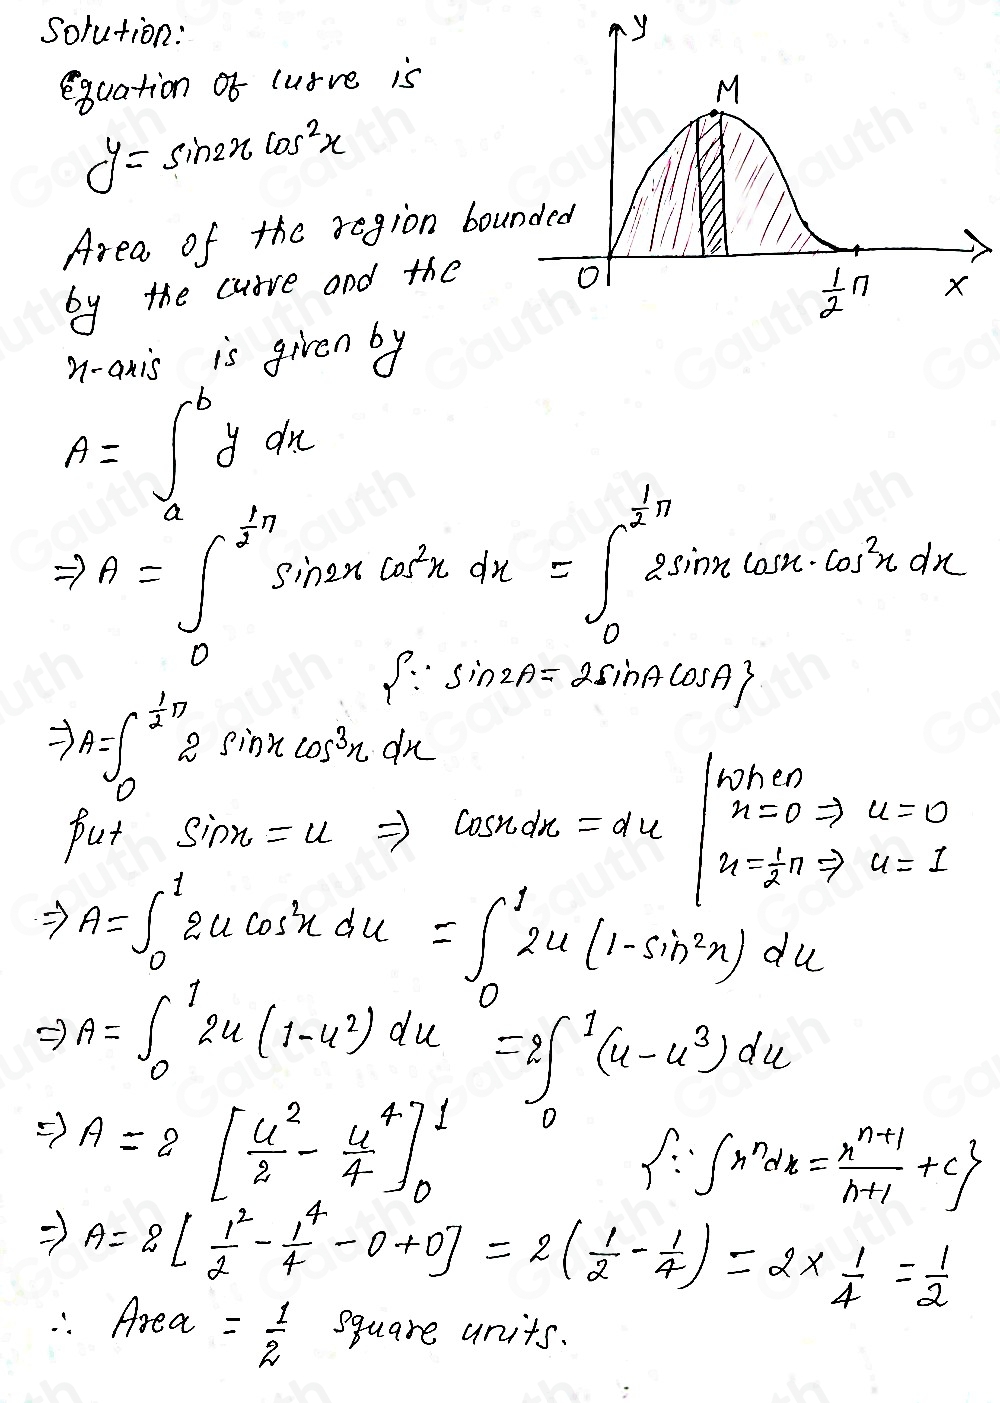 Solution:
Equation of curve is
y = sin2x cos²x
Area of the region bounded
by the curve and the
x-axis is given by
y
M
O
½π
x
A = ∫ₐᵇ y dx
⇒ A = ∫₀^(½π) sin2x cos²x dx = ∫₀^(½π) 2sinx cosx · cos²x dx
{∵ sin2A = 2sinA cosA}
⇒ A = ∫₀^(½π) 2 sinx cos³x dx
put sinx = u ⇒ cosx dx = du
when
x = 0 ⇒ u = 0
x = ½π ⇒ u = 1
⇒ A = ∫₀¹ 2u cos²x du = ∫₀¹ 2u (1 - sin²x) du
⇒ A = ∫₀¹ 2u (1 - u²) du = 2∫₀¹ (u - u³) du
⇒ A = 2 [u²/2 - u⁴/4]₀¹
{∵ ∫xⁿdx = xⁿ⁺¹/n+1 + c}
⇒ A = 2 [1²/2 - 1⁴/4 - 0 + 0] = 2 (1/2 - 1/4) = 2 × 1/4 = 1/2
∴ Area = 1/2 square units.
Gauth